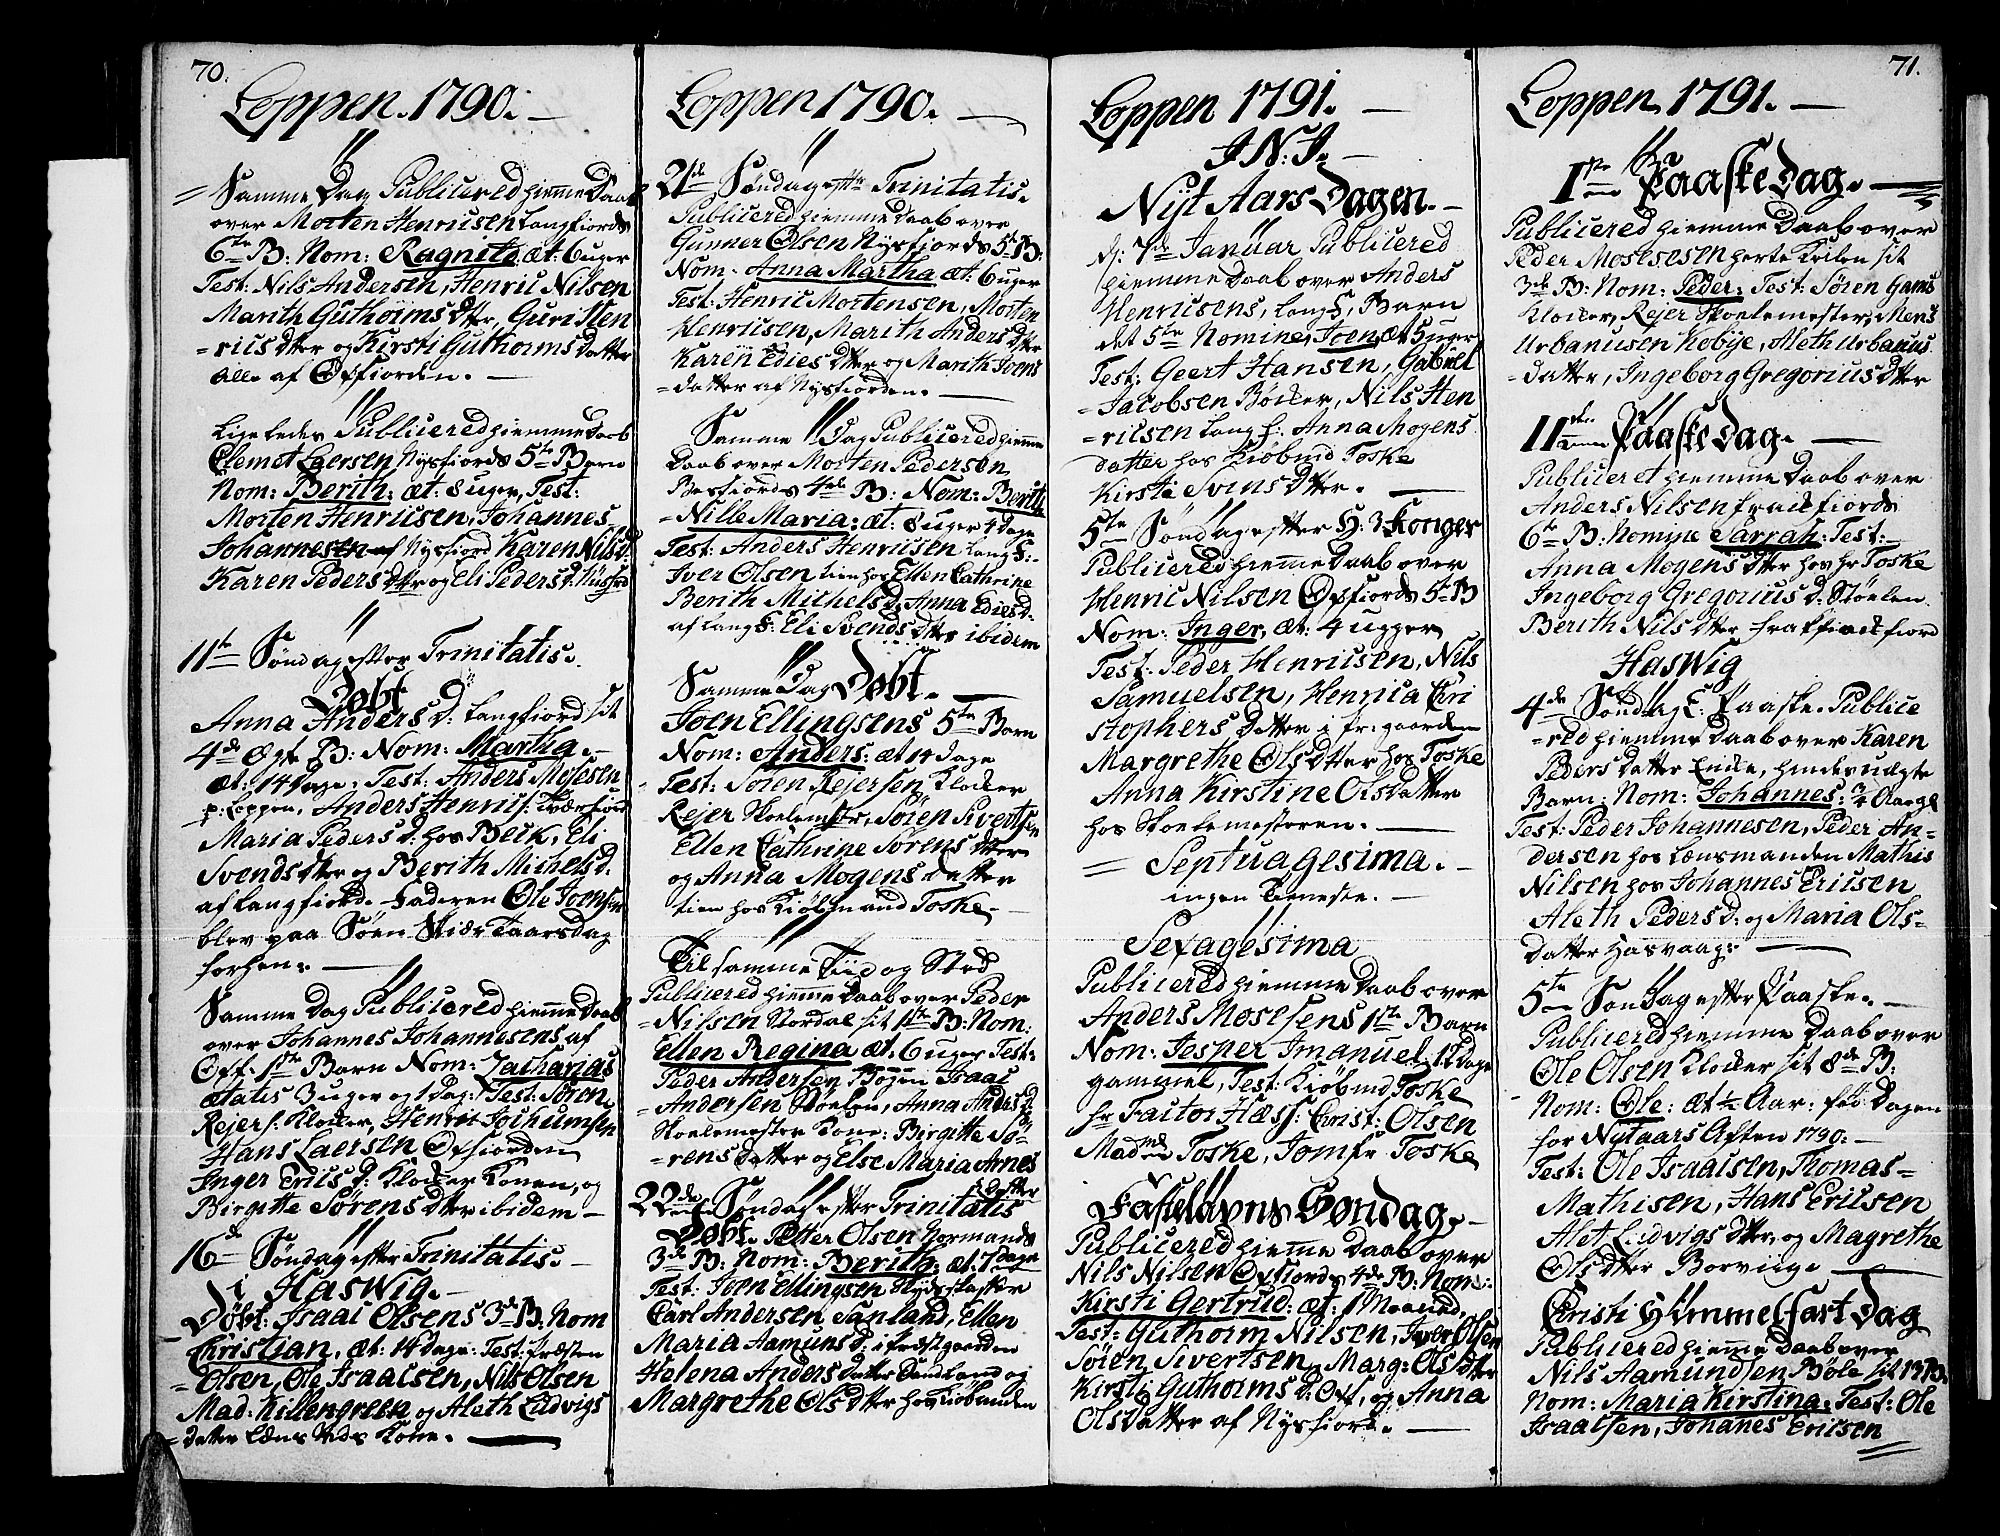 70.
Loppen. 1790. —
Samme Dag Publicered hiemme Daab
over Morten Henricsen Langfiords
6te B: Nom: Ragnild æt: 6 uger
Test: Nils Andersen, Henric Nilsen
Marith Guthorms dtter, Guri Hen
=rics dtter og Kirsti Guthorms Datter
alle af Øxfiorden. —
Ligeledes Publicered hiemme Daab
Clemet Laersen Nysfiords 5te Barn
Nom: Berith: æt: 8 uger, Test:
Morten Henricsen, Johannes
Johannesen af Nysfiord Karen Nils d.
Karen Peders dtter og Eli Peders d:
11te Søndag efter Trinitatis.
Døbt
Anna Anders d: Langfiord sit
4de Ægte B: Nom: Martha. —
æt: 14 Dage: Test: Anders Mosesen
p: Loppen, Anders Henrics:
Maria Peders d: hos Beck, Eli
Svends dtter og Berith Michels d.
af Langfiord. Faderen Ole Joensen
blev paa Søen Skiær Taarsdag
forhen. —
Samme Dag Publicered hiemme Daab
over Johannes Johannesens af
Øxf: 1ste Barn Nom: Zacharias
Ætatis 3 uger og 1 Dag: Test: Søren
Rejers: Klocker, Henric Jochumsen
Hans Laersen Øxfiorden
Inger Erics d: Klocker Konen, og
Birgitte Sørens dtter ibidem —
16de Søndag efter Trinitatis. —
i Haswig. —
Døbt: Isaac Olsens 3de B: Nom
Christian, æt: 14 Dage: Test: Præsten
=Olsen, Ole Isaacsen, Nils Olsen
Mad: Killengreen og Aleth Ludvigs
Datter Lænsmds Kone. —
Loppen 1790. —
21de Søndag efter Trinitatis.
Publicered hiemme Daab over
Gunner Olsen Nysfiords 5te B:
Nom. Anna Martha æt: 6 uger
Test: Henric Mortensen, Morten
Henricsen, Marith Anders dtter
Karen Edies dtter og Marith Joens
=datter af Nysfiorden. —
Samme Dag Publicered hiemme
Daab over Morten Pedersen
Bersfiords 4de B: Nom: Berith
=Nille Maria: æt: 8 uger 4 dage
Test: Anders Henricsen Langf:
Iver Olsen tien hos Ellen Cathrine
Berith Michels d: Anna Edies d:
af Langf: Eli Svends dtter ibidem
Samme Dag Døbt. —
Joen Ellingsens 5te Barn
Nom: Anders: æt 14 Dage
Test: Søren Rejersen Klocker
Rejer Skoelemstr, Søren Sivertsen
Ellen Cathrine Sørens dtter
og Anna Mogens Datter
tien hos Kiøbmand Toske —
Til samme Tiid og Sted
Publicered hiemme Daab over Peder
=Nilsen Stordal sit 1ste B: Nom:
Ellen Regina æt. 6 uger Test:
Peder Andersen Bogen Isaac
=Andersen Skoelen, Anna Anders d.
Skoelemester Kone: Birgitte Sø-
=rens datter og Else Maria Arnes
Datter
22de Søndag efter Trinitatis
Døbt Petter Olsen Normands
3de B: Nom: Berith: æt. 7 Dage
Test: Joen Ellingsen
Carl Andersen Sanland, Ellen
Maria Aamunds d: i Præstgaarden
Helena Anders datter Sandland og
Margrethe Ols dtter hos Kiøbmanden
Loppen 1791. —
I. N. J. —
Nyt Aars Dagen. —
d: 7de Januar Publicered
hiemme Daab over Anders
Henricsens, Langf, Barn
det 5te Nomine, Joen, æt 5 uger
Test: Geert Hansen, Gabriel
=Jacobsen Böcker, Nils Hen
=ricsen Langf: Anna Mogens
datter hos Kiøbmd Toske
Kirsti Svens dtter. —
5te Søndag efter H: 3 Konger
Publicered hiemme Daab over
Henric Nilsen Øxfiords 5te B
Nom: Inger, æt: 4 ugger
Test: Peder Henricsen, Nils
Samuelsen, Henrica Chri
stophers Datter i Pr: gaarden
Margrethe Ols dtter hos Toske
Anna Kirstine Olsdatter
hos Skoelemesteren. —
= Septuagesima. —
ingen Tieneste. —
Sexagesima
Publicered hiemme Daab over
Anders Mosesens 1ste Barn
Nom: Jesper Imanuel 12 Dage
gammel, Test: Kiøbmd Toske
hr Factor Hæss: Christ: Olsen
Madme Toske, Jomfr Toske
Fastelavns Søndag. —
Publicered hiemme Daab over
Nils Nilsen Øxfiords 4de B: Nom:
Kirsti Gertrud: æt: 1 Maaned.
Test: Guthorm Nilsen, Iver Olsen
Søren Sivertsen, Marg: Ols dtter
Kirsti Guthorms d: Øxf, og Anna
Olsdatter af Nysfiord. —
71.
Loppen 1791. —
1ste Paaske Dag. —
Publicered hiemme Daab over
Peder Mosesen herte Keilen sit
3de B: Nom: Peder: Test: Søren Gams
Klocker, Rejer Skoelemester, Mens
Urbanusen Nobye, Aleth Urbanus
=datter, Ingeborg Gregorius dtter
11den Paaske Dag. —
Publiceret hiemme Daab over
Anders Nilsen Frackfiords
6te B: Nomine Sarrah: Test:
Anna Mogens dtter hos hr Toske
Ingeborg Gregorius d: Skoelen
Berith Nils dtter Frakfiord
HasWig
4de Søndag E: Paaske. Publice
=red hiemme Daab over Karen
Peders Datter Encke, hindes uægte
Barn: Nom: Johannes: 3/4 Aar gl
Test: Peder Johannesen, Peder An-
dersen hos Lænsmanden Mathis
Nilsen hos Johannes Ericsen
Aleth Peders d: og Maria Ols-
datter Hasvaag. —
5te Søndag efter Paaske. —
Publicered hiemme Daab over
Ole Olsen Klocker sit 8de B:
Nom: Ole: æt 1/2 Aar: fød Dagen
for Nytaars Aften 1790. —
Test: Ole Isaacsen, Thomas
Mathisen, Hans Ericsen
Alet Ludvigs dtter, og Magrethe
Ols dtter Borviig. —
Christi Himmelfart Dag
Publicered hiemme Daab over
Nils Aamundsen Bøle sit 1ste B.
Nom: Maria Kirstina: Test: Ole
Isaacsen, Johanes Ericsen